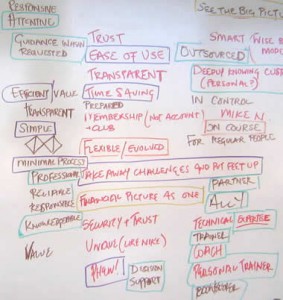 RESPONSIVE
ATTENTIVE
GUIDANCE WHEN
REQUESTED
EFFICIENT/VALUE
TRANSPARENT
SIMPLE
MINIMAL PROCESS
PROFESSIONAL
RELIABLE
RESPONSIVE
KNOWLEDGEABLE
VALUE
TRUST
EASE OF USE
TRANSPARENT
TIME SAVING
PREPARED
MEMBERSHIP (NOT ACCOUNT)
→CLUB
FLEXIBLE/EVOLVED
TAKE AWAY CHALLENGES AND PUT FEET UP
FINANCIAL PICTURE AS ONE
SECURITY + TRUST
UNIQUE (LIKE NIKE)
DECISION
SUPPORT
SEE THE BIG PICTU
SMART
OUTSOURCED
DEEPLY KNOWING CUS
(PERSONAL?)
IN CONTROL
MIKE N
ON COURSE
FOR REGULAR PEOPLE
PARTNER
ALLY
TECHNICAL EXPERTISE
TRAINER
COACH
PERSONAL TRAINER
BOOKKEEPER